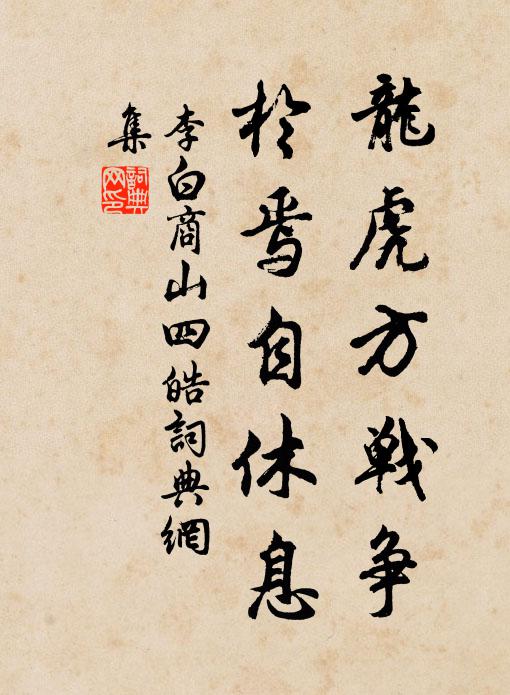 龍虎方戰争
於焉自休息
李白商山四皓詞典網
集
詞典
网印